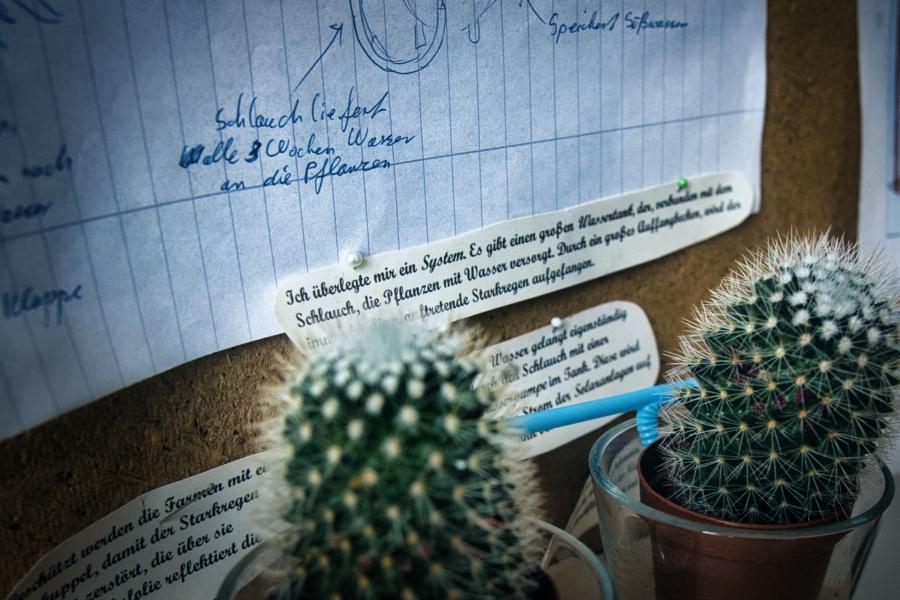 Speichert Süßwasser
Schlauch liefert
alle 3 Wochen Wasser
an die Pflanzen
Klappe
Ich überlegte mir ein System. Es gibt einen großen Wassertank, der, verbunden mit dem
Schlauch, die Pflanzen mit Wasser versorgt. Durch ein großes Auffangbecken, wird der
auftretende Starkregen aufgefangen.
Wasser gelangt eigenständig
Schlauch mit einer
pumpe im Tank. Diese wird
Strom der Solaranlagen auf
werden die Farmen mit
kuppel, damit der Starkregen
zerstört, die über sie
folie reflektiert die